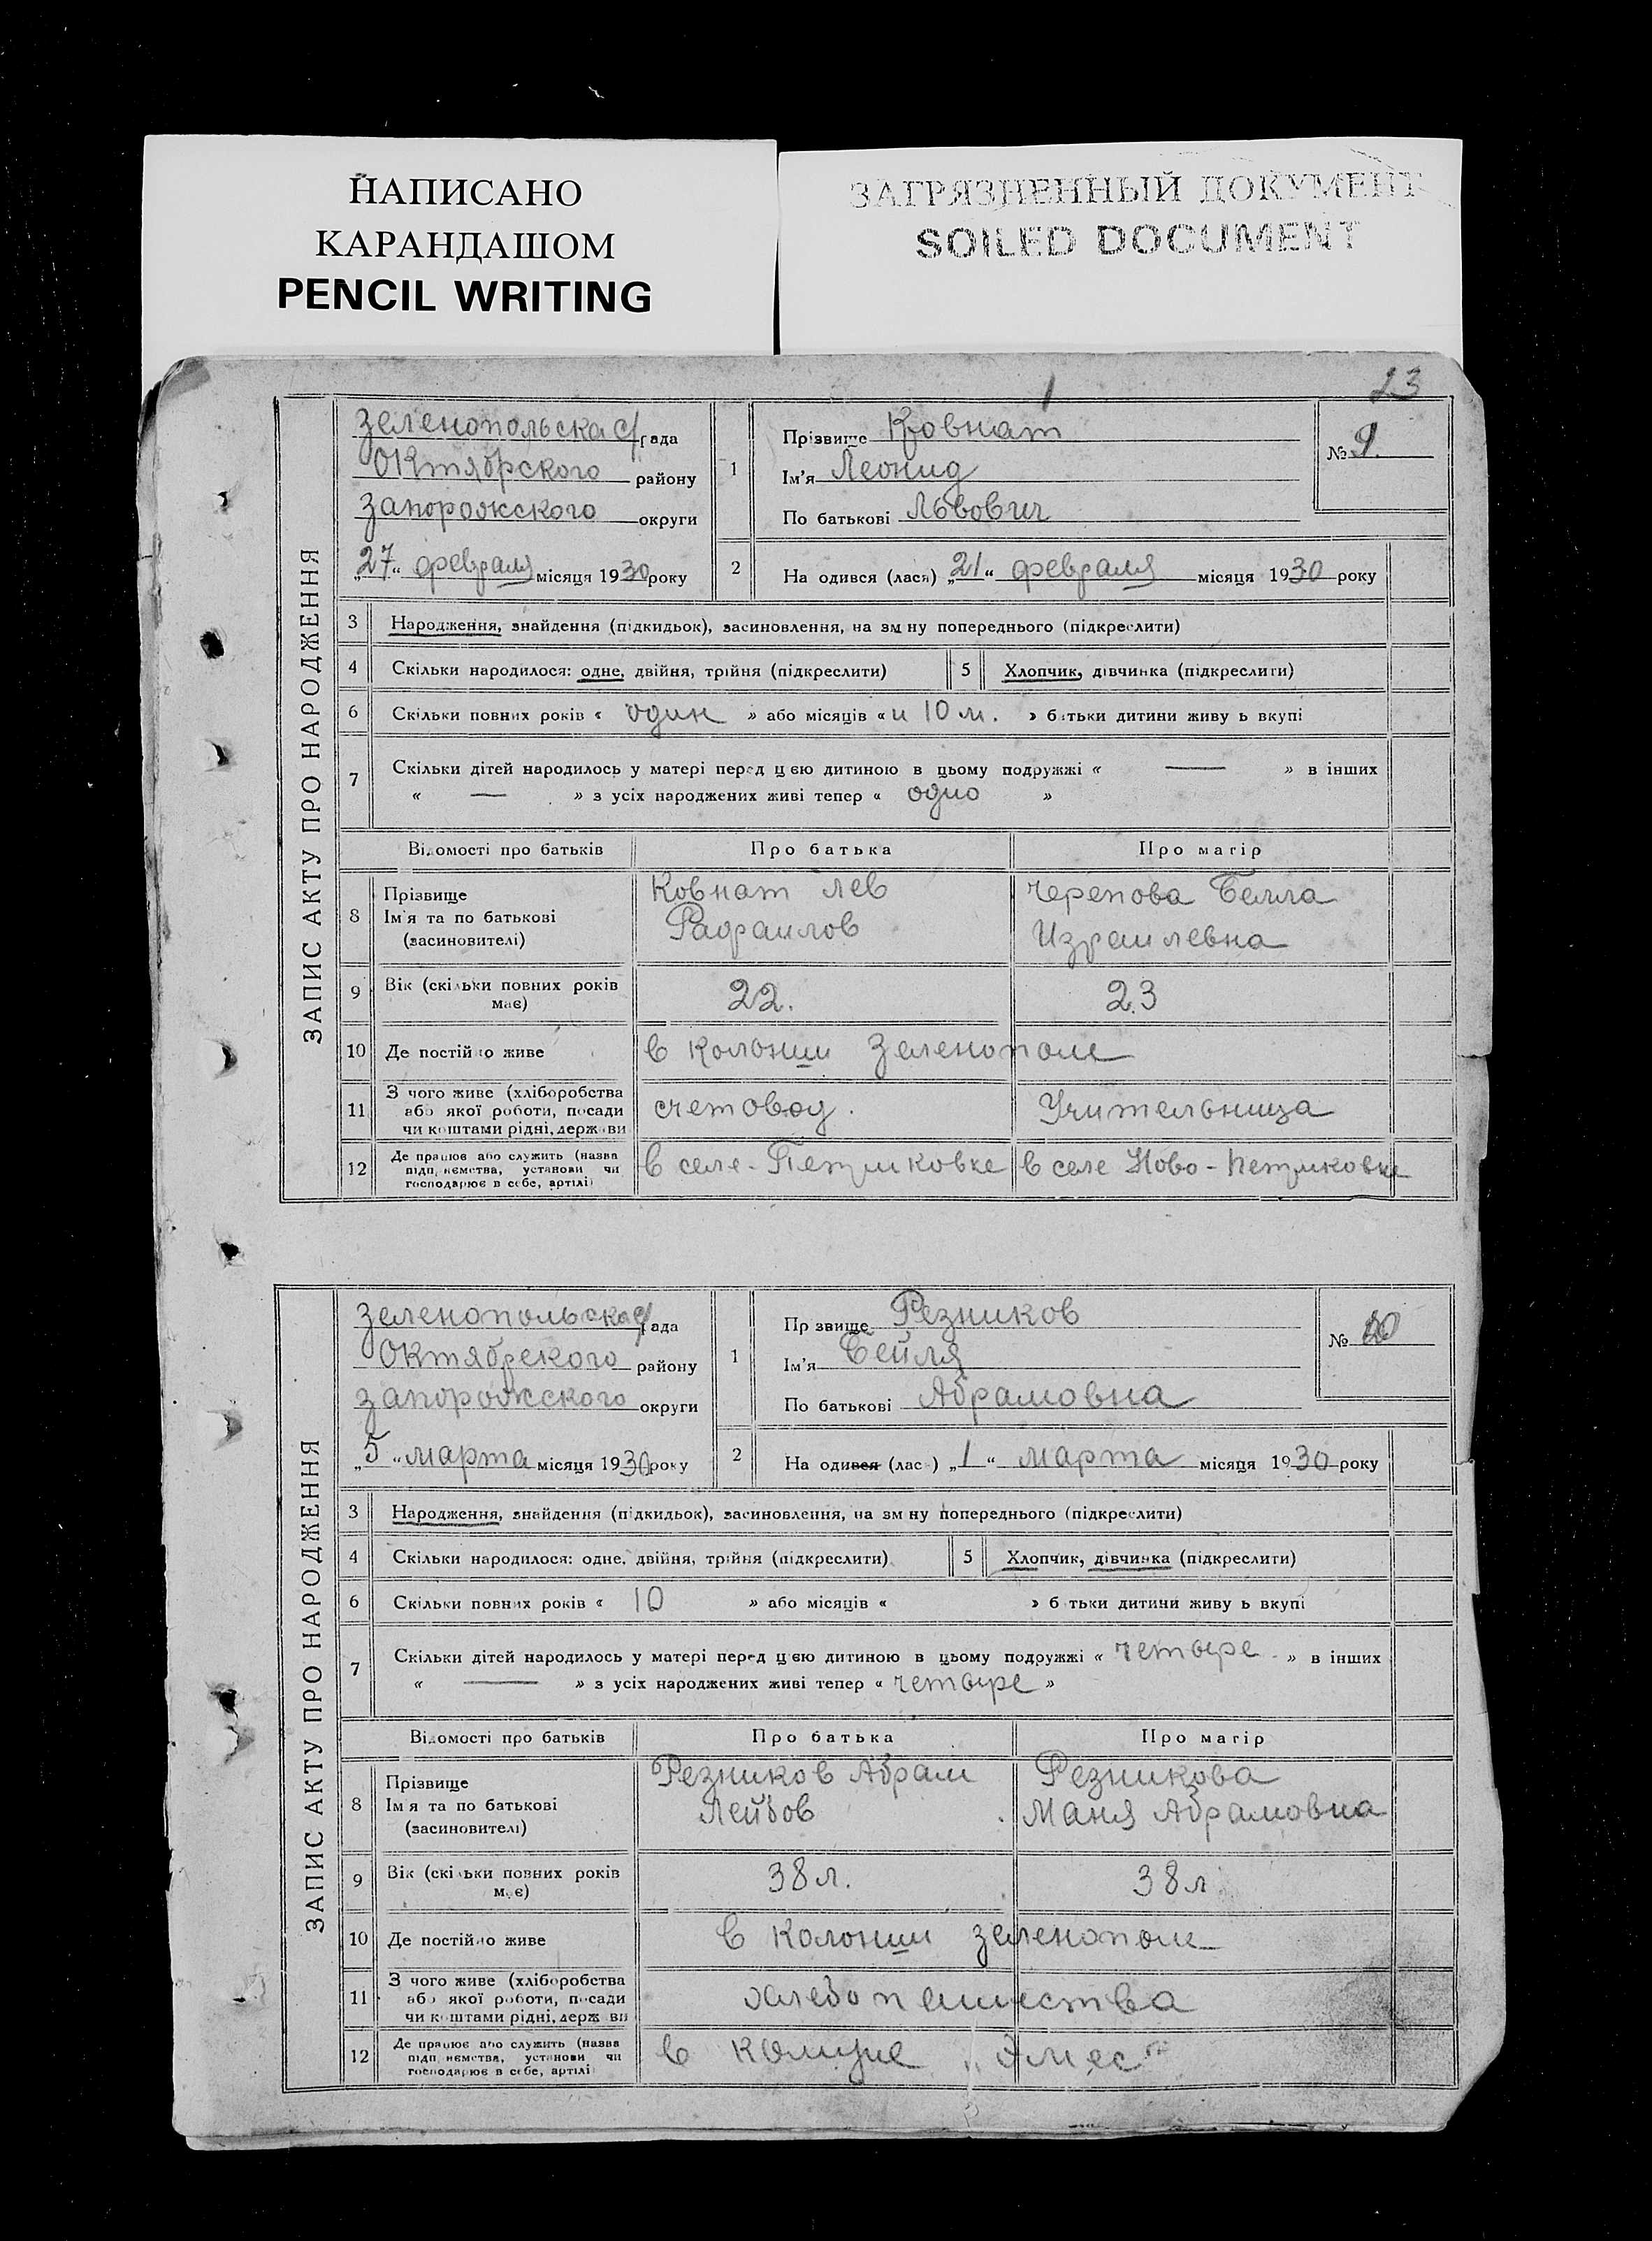 НАПИСАНО
КАРАНДАШОМ
PENCIL WRITING
ЗАГРЯЗНЕННЫЙ ДОКУМЕНТ
SOILED DOCUMENT
23
ЗАПИС АКТУ ПРО НАРОДЖЕННЯ
Зеленопольска с/рада
Октябрского району
Запорожского округи
„27“ февраля місяця 1930 року
1
Прізвище Ковнат
Ім'я Леонид
По батькові Львович
№ 9.
2
На одився (лася) „21“ февраля місяця 1930 року
3 Народження, знайдення (підкидьок), засиновлення, на зм ну попереднього (підкреслити)
4 Скільки народилося: одне, двійня, трійня (підкреслити) 5 Хлопчик, дівчинка (підкреслити)
6 Скільки повних років « один » або місяців « и 10 м. » батьки дитини живу ь вкупі
7 Скільки дітей народилось у матері перед цією дитиною в цьому подружжі « — » в інших
« — » з усіх народжених живі тепер « одно »
Відомості про батьків Про батька Про матір
8 Прізвище
Ім'я та по батькові
(засиновителі)
Ковнат Лев
Рафаилов
Черепова Белла
Израилевна
9 Вік (скільки повних років
має)
22. 23
10 Де постійно живе в колонии Зеленополе
11 З чого живе (хліборобства
або якої роботи, посади
чи коштами рідні, держави
счетовод. Учительница
12 Де працює або служить (назва
підприємства, установи чи
господарює в себе, артілі)
в селе - Петриковке в селе Ново-Петриковке
ЗАПИС АКТУ ПРО НАРОДЖЕННЯ
Зеленопольска с/рада
Октябрского району
Запорожского округи
„5“ марта місяця 1930 року
1
Пр звище Резников
Ім'я Бейля
По батькові Абрамовна
№ 10
2
На одився (лас ) „1“ марта місяця 1930 року
3 Народження, знайдення (підкидьок), засиновлення, на зм ну попереднього (підкреслити)
4 Скільки народилося: одне, двійня, трійня (підкреслити) 5 Хлопчик, дівчинка (підкреслити)
6 Скільки повних років « 10 » або місяців « » б тьки дитини живу ь вкупі
7 Скільки дітей народилось у матері перед цією дитиною в цьому подружжі « четыре » в інших
« — » з усіх народжених живі тепер « четыре »
Відомості про батьків Про батька Про матір
8 Прізвище
Ім'я та по батькові
(засиновителі)
Резников Абрам
Лейбов
Резникова
Маня Абрамовна
9 Вік (скільки повних років
має)
38 л. 38 л
10 Де постійно живе в колонии Зеленополе
11 З чого живе (хліборобства
або якої роботи, посади
чи коштами рідні, держ ви
хлебопашества
12 Де працює або служить (назва
підприємства, установи чи
господарює в себе, артілі
в комуне „Эмес“